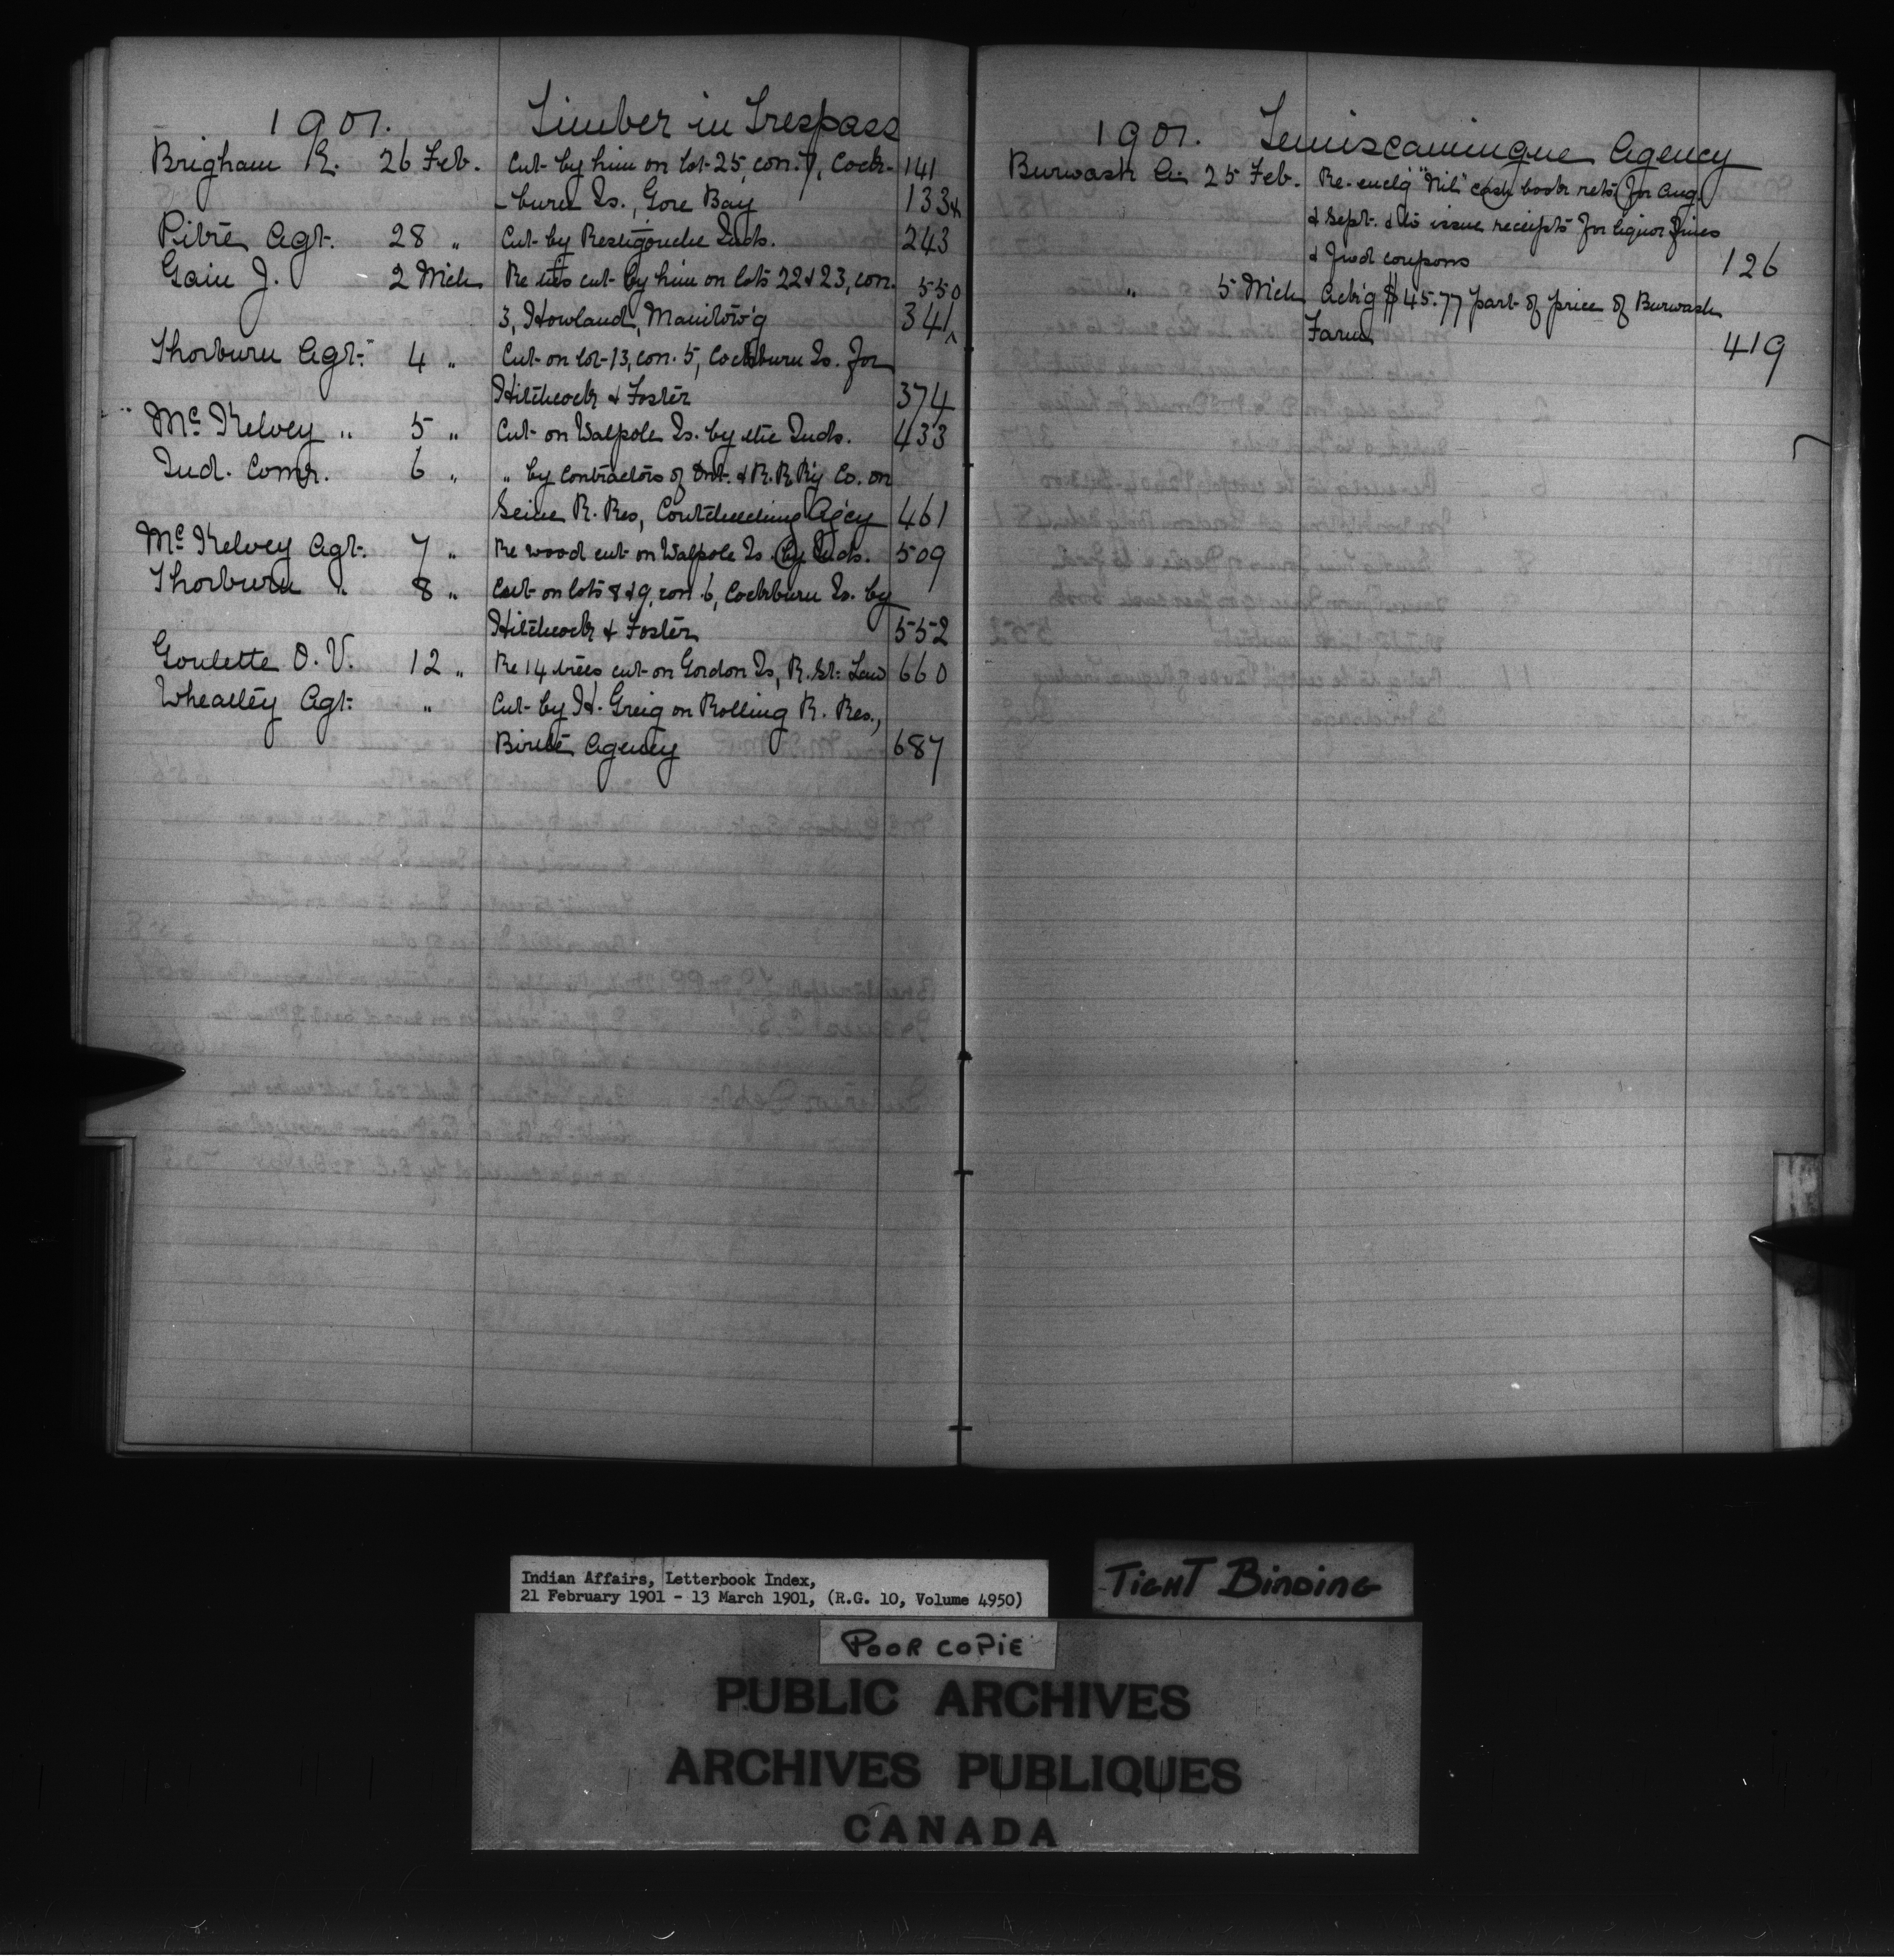 1901. Timber in Trespass
Brigham R. 26 Feb. Cut by him on lot 25, con. 7, Cock- 141
-burn Is., Gore Bay 133
Pitre Agt. 28 " Cut by Restigouche Inds. 243
Gain J. 2 Mch Re ties cut by him on lots 22 & 23, con. 550
3, Howland, Manitow'g 341
Thorburn Agt. 4 " Cut on lot 13, con. 5, Cockburn Is. for
Hitchcock & Foster 374
McKelvey " 5 " Cut on Walpole Is. by the Inds. 433
Ind. Comr. 6 " " by Contractors of Ont. & R. R. R'y Co. on
Seine R. Res, Coutcheeching Ag'cy 461
McKelvey Agt. 7 " Re wood cut on Walpole Is. by Inds. 509
Thorburn " 8 " Cut on lots 8 & 9, con. 6, Cockburn Is. by
Hitchcock & Foster 552
Goulette O. V. 12 " Re 14 trees cut on Gordon Is, R. St. Law 660
Wheatley Agt. " Cut by H. Greig on Rolling R. Res.,
Birtle Agency 687
1901. Temiscamingue Agency
Burwash A. 25 Feb. Re enclg "Nil" cash book rets for Aug.
& Sept. & to issue receipts for liquor fines
& fwd coupons 126
" 5 Mch Ack'g $45.77 part of price of Burwash
Farm 419
Indian Affairs, Letterbook Index,
21 February 1901 - 13 March 1901, (R.G. 10, Volume 4950)
TIGHT BINDING
POOR COPIE
PUBLIC ARCHIVES
ARCHIVES PUBLIQUES
CANADA